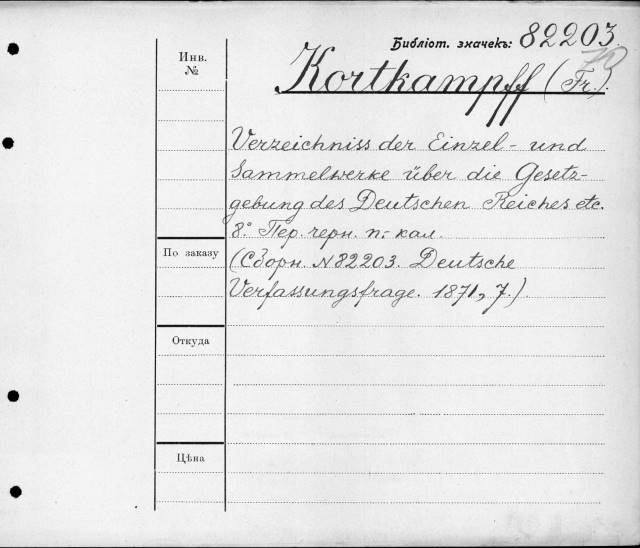 Библіот. значекъ: 82203
Инв.
№
Kortkampff (Fr.).
Verzeichniss der Einzel- und
Sammelwerke über die Gesetz-
gebung des Deutschen Reiches etc.
8° Пер. черн. п.- кал.
По заказу
(Сборн. N 82203. Deutsche
Verfassungsfrage. 1871, 7.)
Откуда
Цѣна